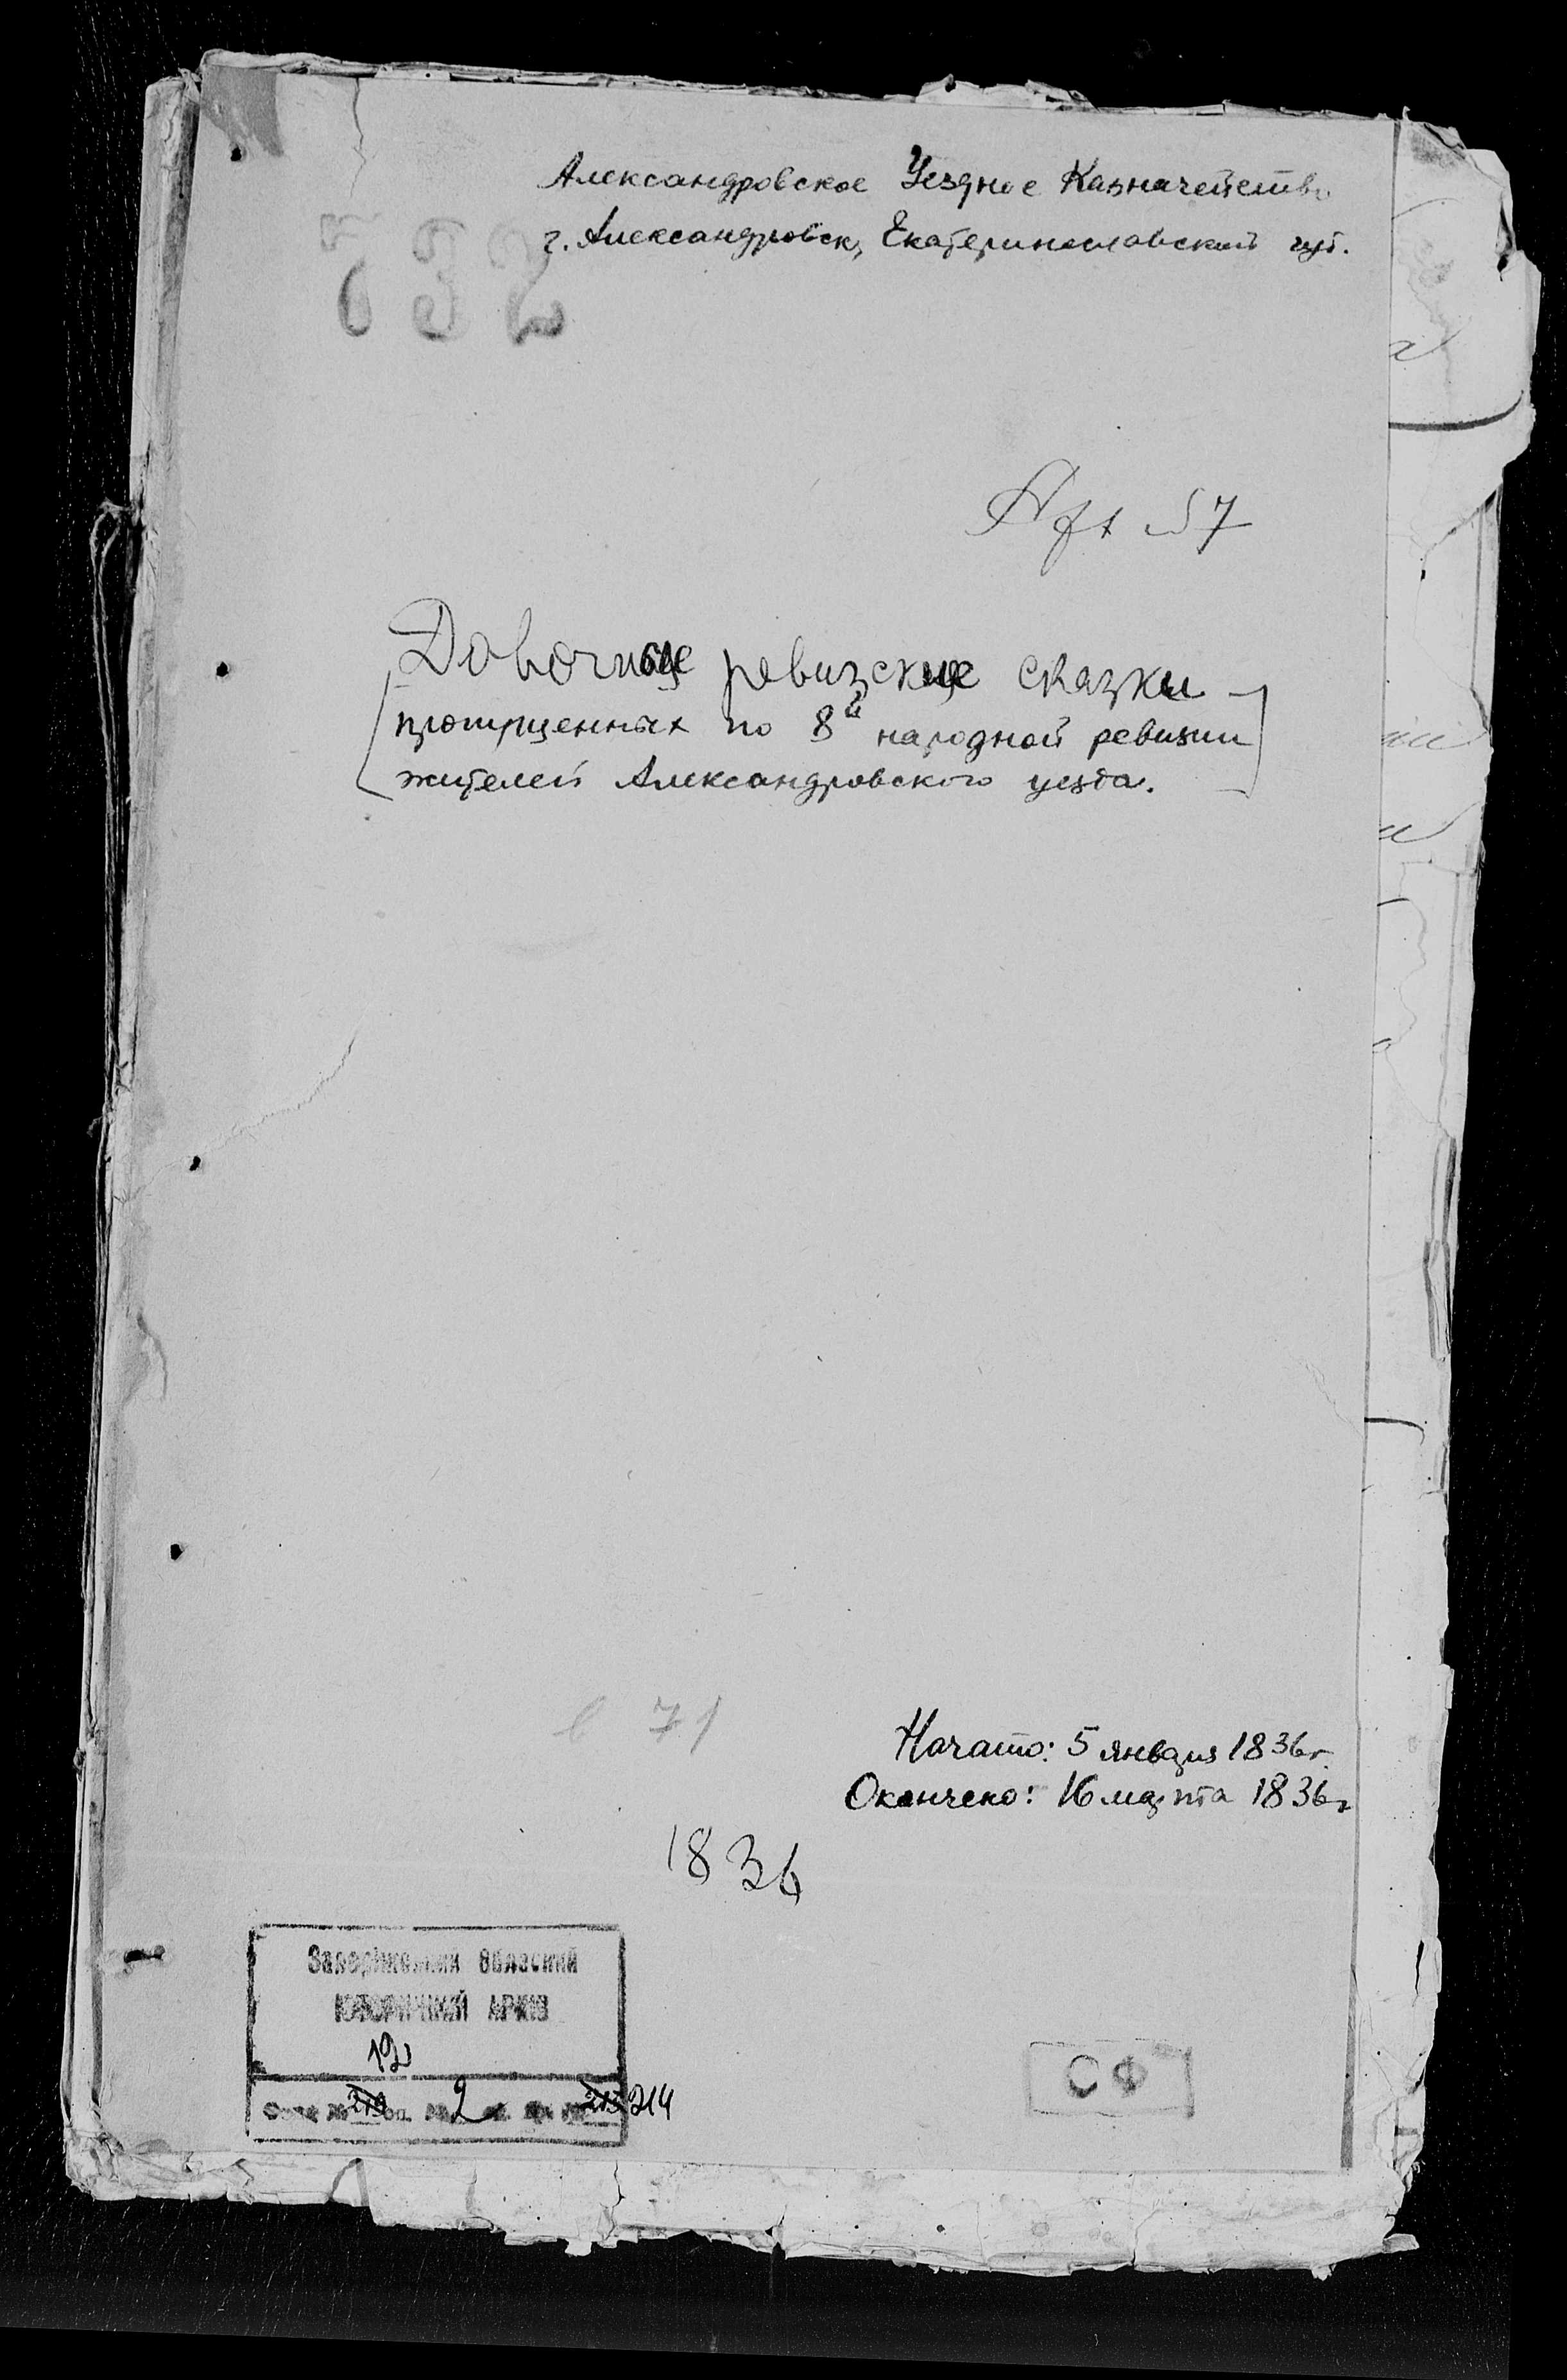 Александровское Уездное Казначейство
г. Александровск, Екатеринославской губ.
652
№ 57
ревизские сказки
пропущенных по 8й народной ревизии
жителей Александровского уезда.
в 71
Начато: 5 января 1836г.
Окончено: 16 марта 1836г
1836
Запорізький Обласний
ІСТОРИЧНИЙ АРХІВ
12
Фонд № 210 оп. № 2 од. зб. № 213 214
СФ